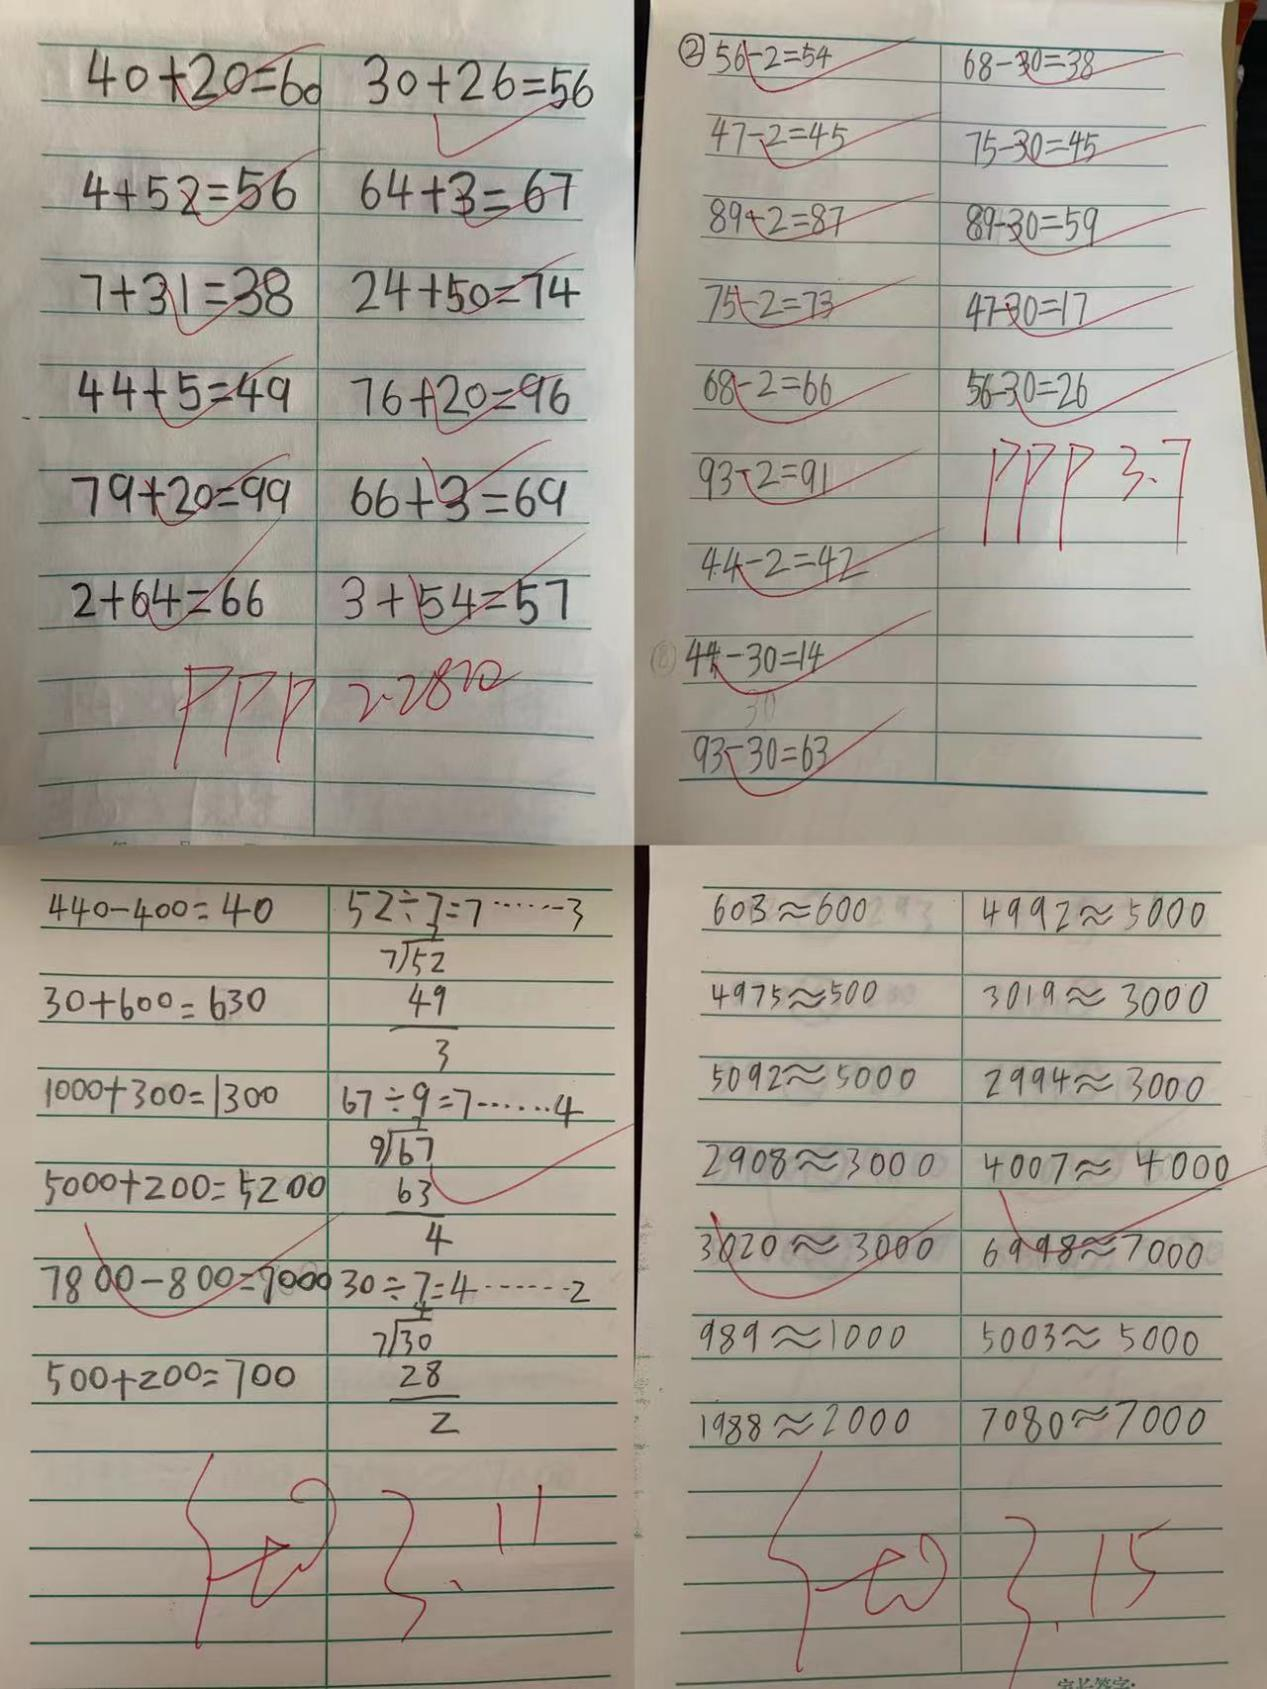 40+20=60 30+26=56
4+52=56 64+3=67
7+31=38 24+50=74
44+5=49 76+20=96
79+20=99 66+3=69
2+64=66 3+54=57
PPP 2.28
② 56-2=54 68-30=38
47-2=45 75-30=45
89-2=87 89-30=59
75-2=73 47-30=17
68-2=66 56-30=26
93-2=91
PPP 3.7
44-2=42
44-30=14
30
93-30=63
440-400=40 52÷7=7……3
7
7)52
30+600=630 49
3
1000+300=1300 67÷9=7……4
7
9)67
5000+200=5200 63
4
7800-800=7000 30÷7=4……2
4
7)30
500+200=700 28
2
3.11
603≈600 4992≈5000
4975≈500 3019≈3000
5092≈5000 2994≈3000
2908≈3000 4007≈4000
3020≈3000 6998≈7000
989≈1000 5003≈5000
1988≈2000 7080≈7000
3.15
家长签字: